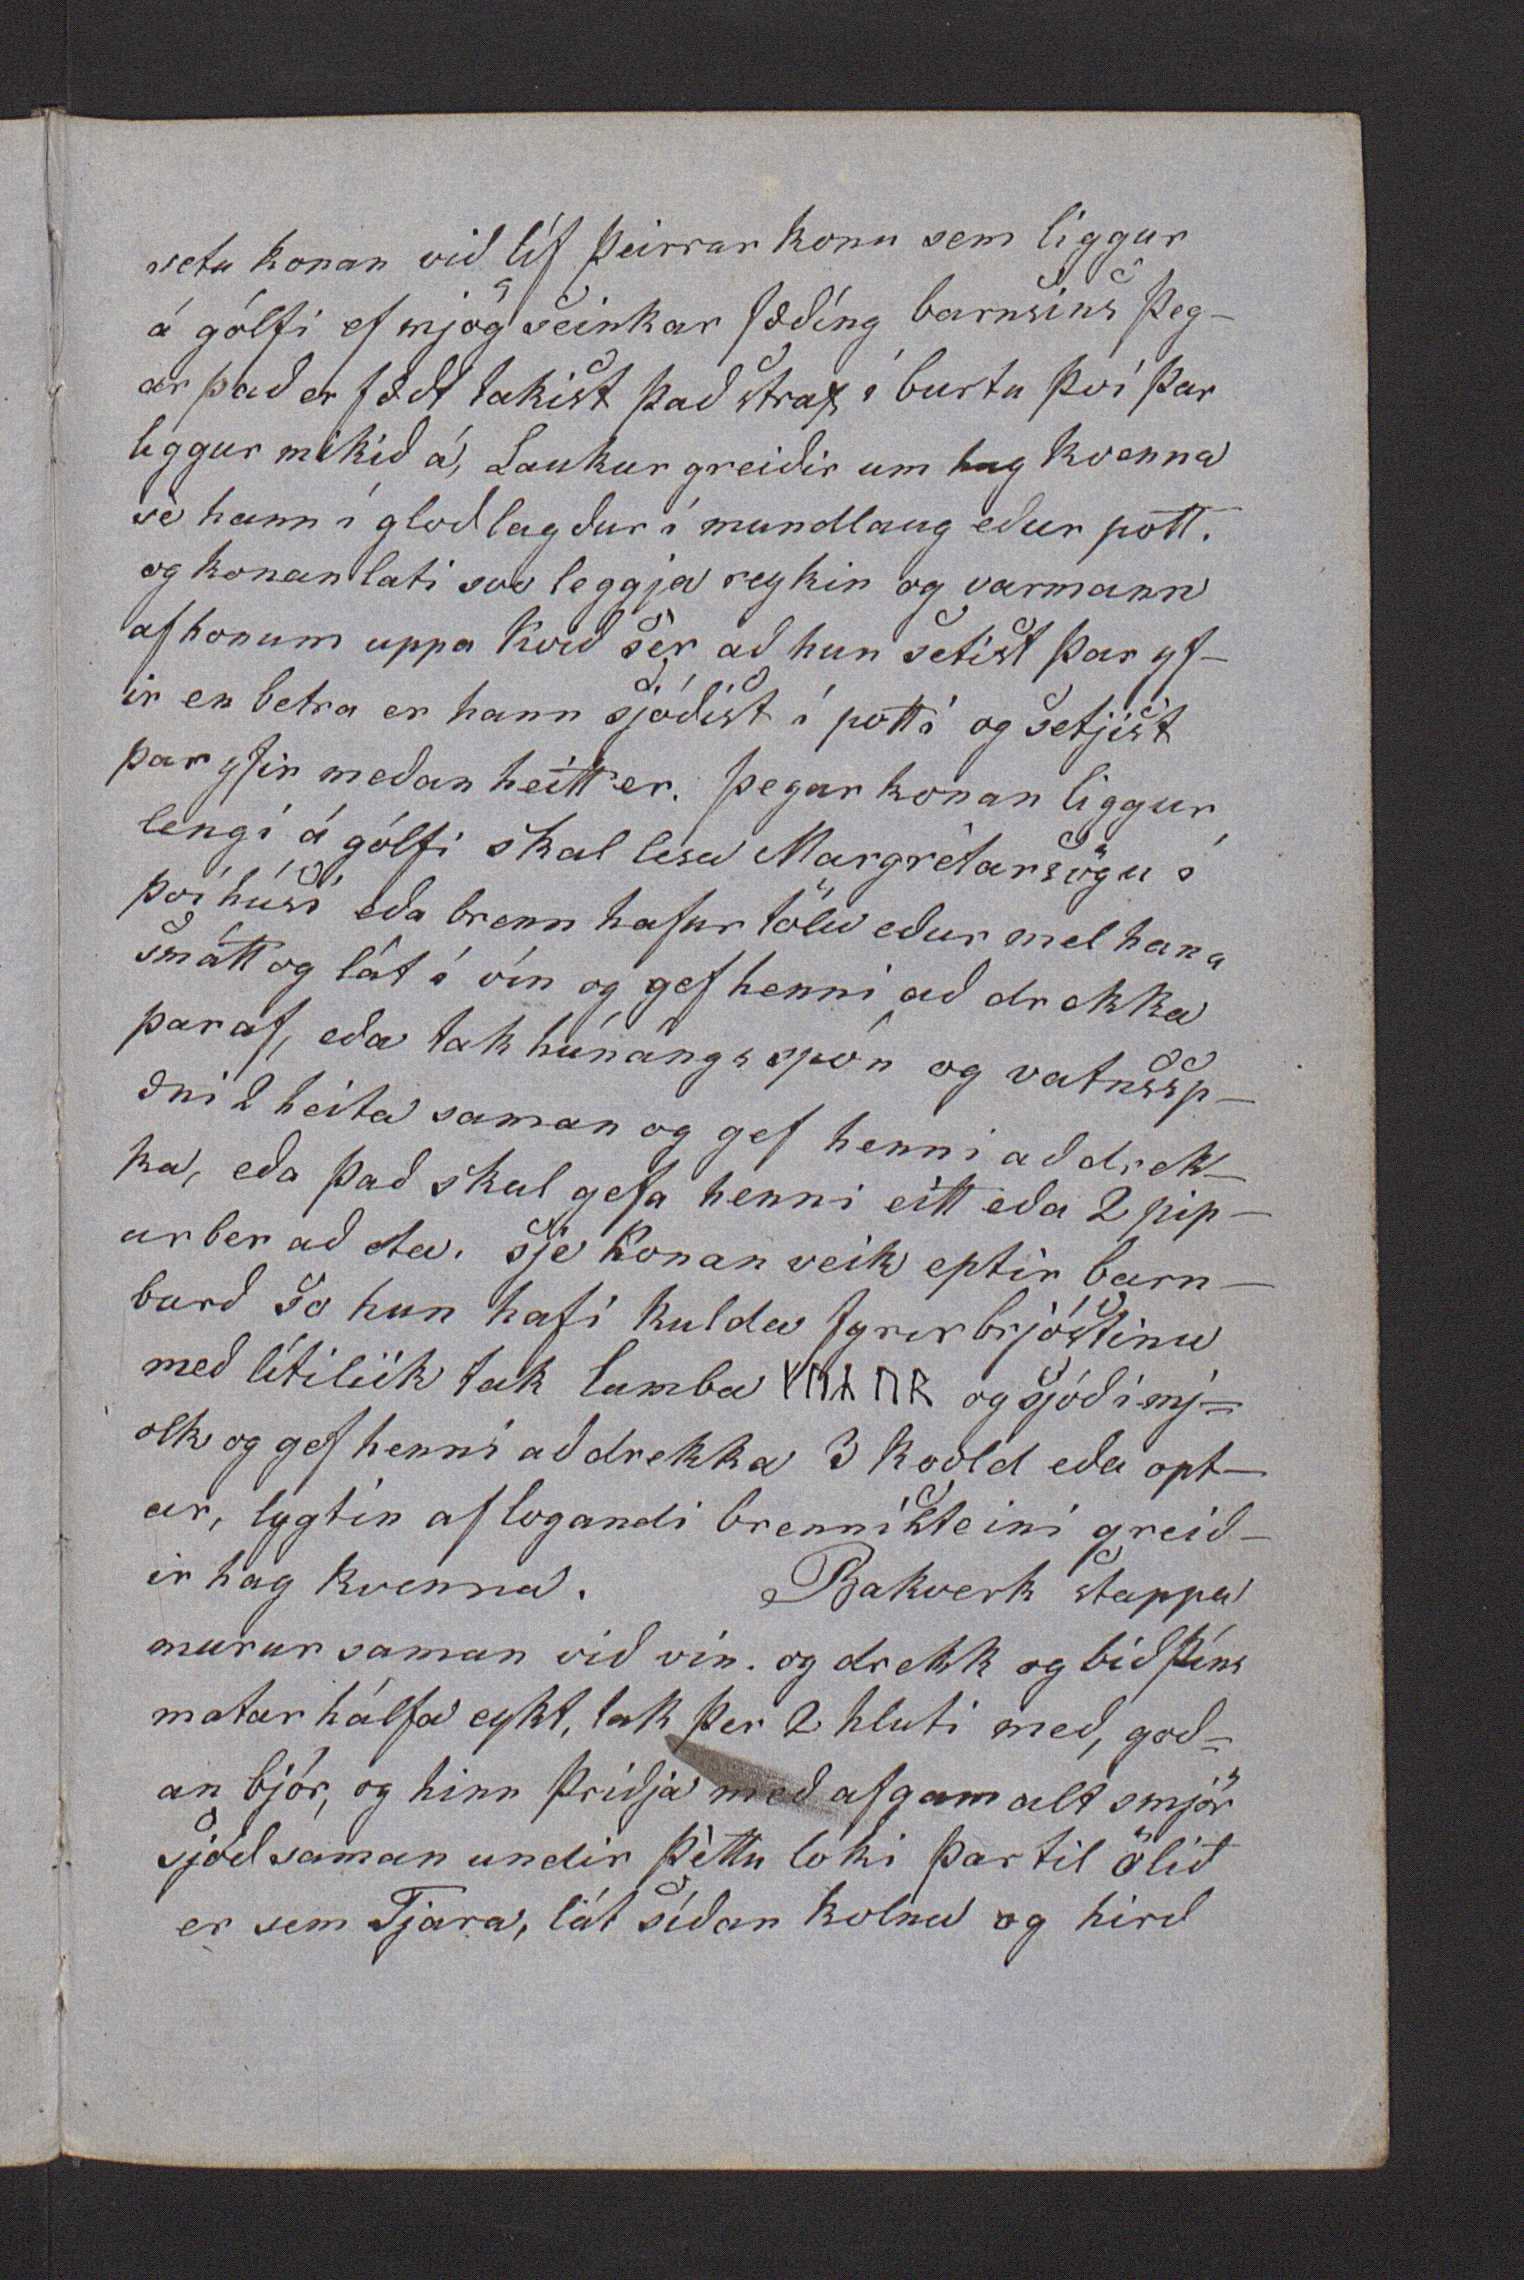 setu konan við líf þeirrar konu sem liggur
á gólfi ef mjög seinkar fæðíng barnsins þeg-
ar það er fædt takist það strax í burtu því þar
liggur mikið á, Laukur greiðir um hag kvenna
sè hann í gloð lagður í mundlaug eður pott.
og konan lati svo leggja reykin og varmann
af honum uppa kvið sèr að hun setist þar yf-
ir en betra er hann sjóðist í potti og setjist
þar yfir meðan heitt er. Þegar konan liggur
lengi á gólfi skal lesa Margrétarsögu í
því húsi eða brenn hafur tölu eður mel hana
smátt og lát í vín og gef henni að drekka
þar af, eða tak húnángs spón og vatnssp-
óni 2 heita saman og gef henni að drek-
ka, eða það skal gefa henni eitt eða 2 pip-
urber að eta. Sje konan veik eptir barn-
burð So hun hafi kulda fyrir brjóstinu
með lítiliik tak lamba ᚴᚢᚼᚢᚱ og sjóð í mj=
olk og gef henni að drekka 3 kvöld eða opt-
ar, lygtin af logandi brennisteini greið-
ir hag kvenna. Bakverk stappa
murur saman við vín. og drekk og bíð þíns
matar hálfa eykt, tak þer 2 hluti með, goð=
an bjór, og hinn þriðja með af gamalt smjör
sjóð saman undir þèttu loki þar til ölið
er sem Tjara, lát síðan kolna og hirð